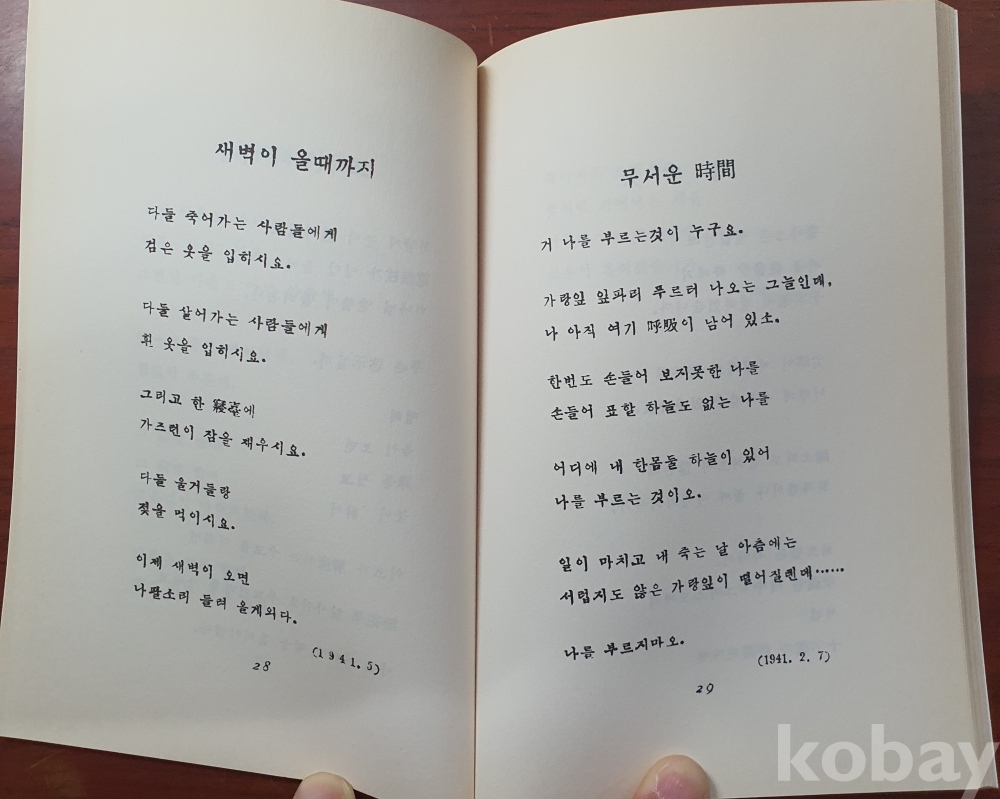 새벽이 올때까지
다들 죽어가는 사람들에게
검은 옷을 입히시요.
다들 살어가는 사람들에게
흰 옷을 입히시요.
그리고 한 寢臺에
가즈런이 잠을 재우시요.
다들 울거들랑
젖을 먹이시요.
이제 새벽이 오면
나팔소리 들려 올게외다.
(1941. 5)
28
무서운 時間
거 나를 부르는것이 누구요.
가랑잎 잎파리 푸르러 나오는 그늘인데,
나 아직 여기 呼吸이 남어 있소.
한번도 손들어 보지못한 나를
손들어 표할 하늘도 없는 나를
어디에 내 한몸둘 하늘이 있어
나를 부르는 것이오.
일이 마치고 내 죽는 날 아츰에는
서럽지도 않은 가랑잎이 떨어질텐데……
나를 부르지마오.
(1941. 2. 7)
29
kobay